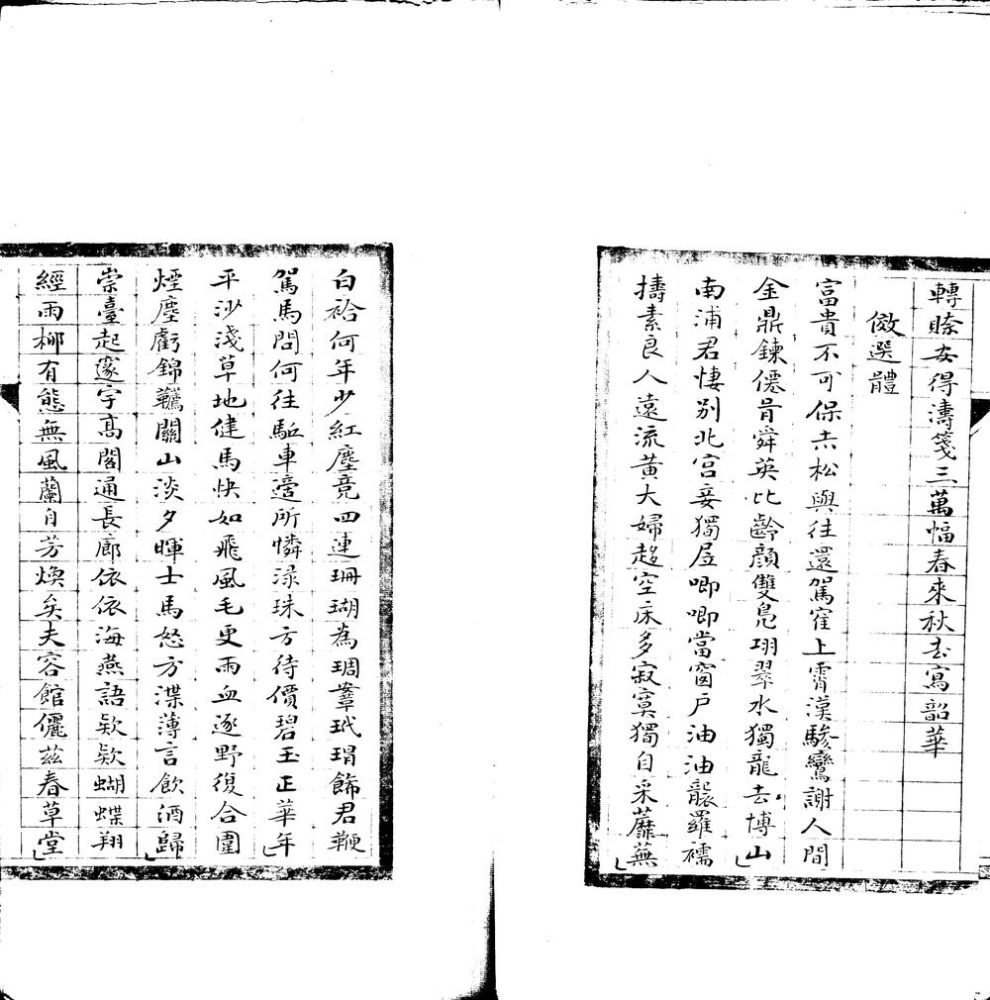 轉賖安得濤箋三萬幅春來秋去寫韶華
倣選體
富貴不可保赤松與往還駕寉上霄漢驂鸞謝人間
金鼎鍊僊骨舜英比齡顏雙鳧翊翠水獨龍去博山
南浦君悽別北宮妾獨居唧唧當窗戶油油襲羅襦
擣素良人遠流黃大婦趍空床多寂寞獨自采蘼蕪
白袷何年少紅塵竟四連珊瑚為琱鞌玳瑁飾君鞭
駕馬問何往駈車適所憐淥珠方待價碧玉正華年
平沙淺草地健馬快如飛風毛更雨血逐野復合圍
煙塵虧錦韉關山淡夕暉士馬怒方渫薄言飲酒歸
崇臺起邃宇高閣通長廊依依海燕語欵欵蝴蝶翔
經雨柳有態無風蘭自芳煥矣夫容館儷茲春草堂